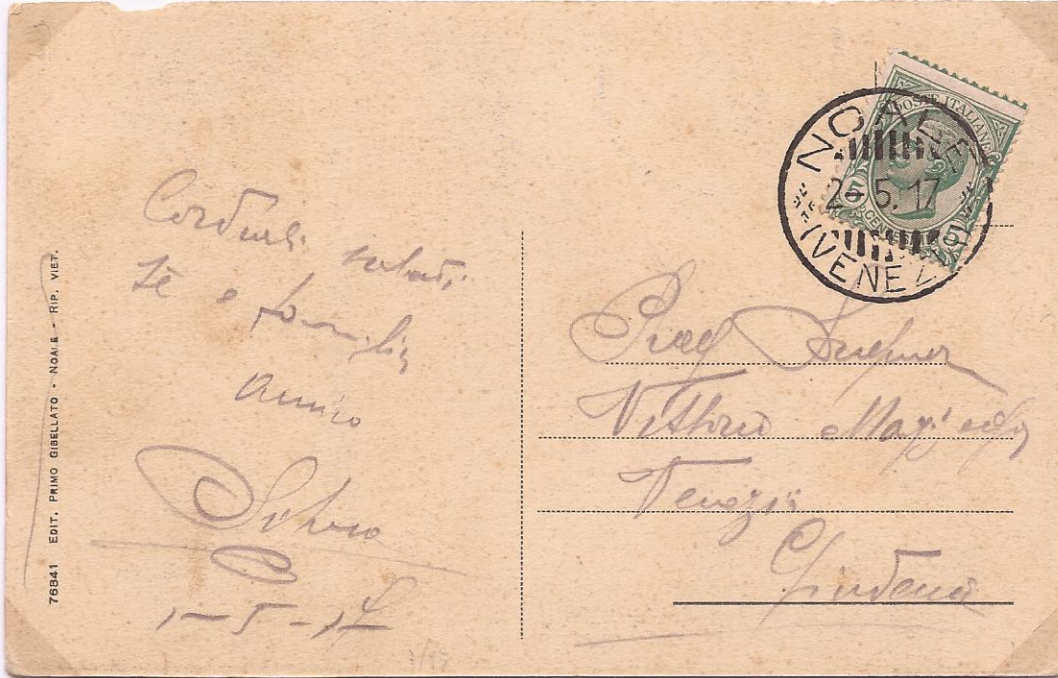 76841 EDIT. PRIMO GIBELLATO - NOALE - RIP. VIET.
Cordiali saluti
te e famiglia
amico
Silvio
1-5-17
POSTE ITALIANE
NOALE
2-5.17
(VENEZIA)
CENT
5
Vittorio
Venezia
Giudecca